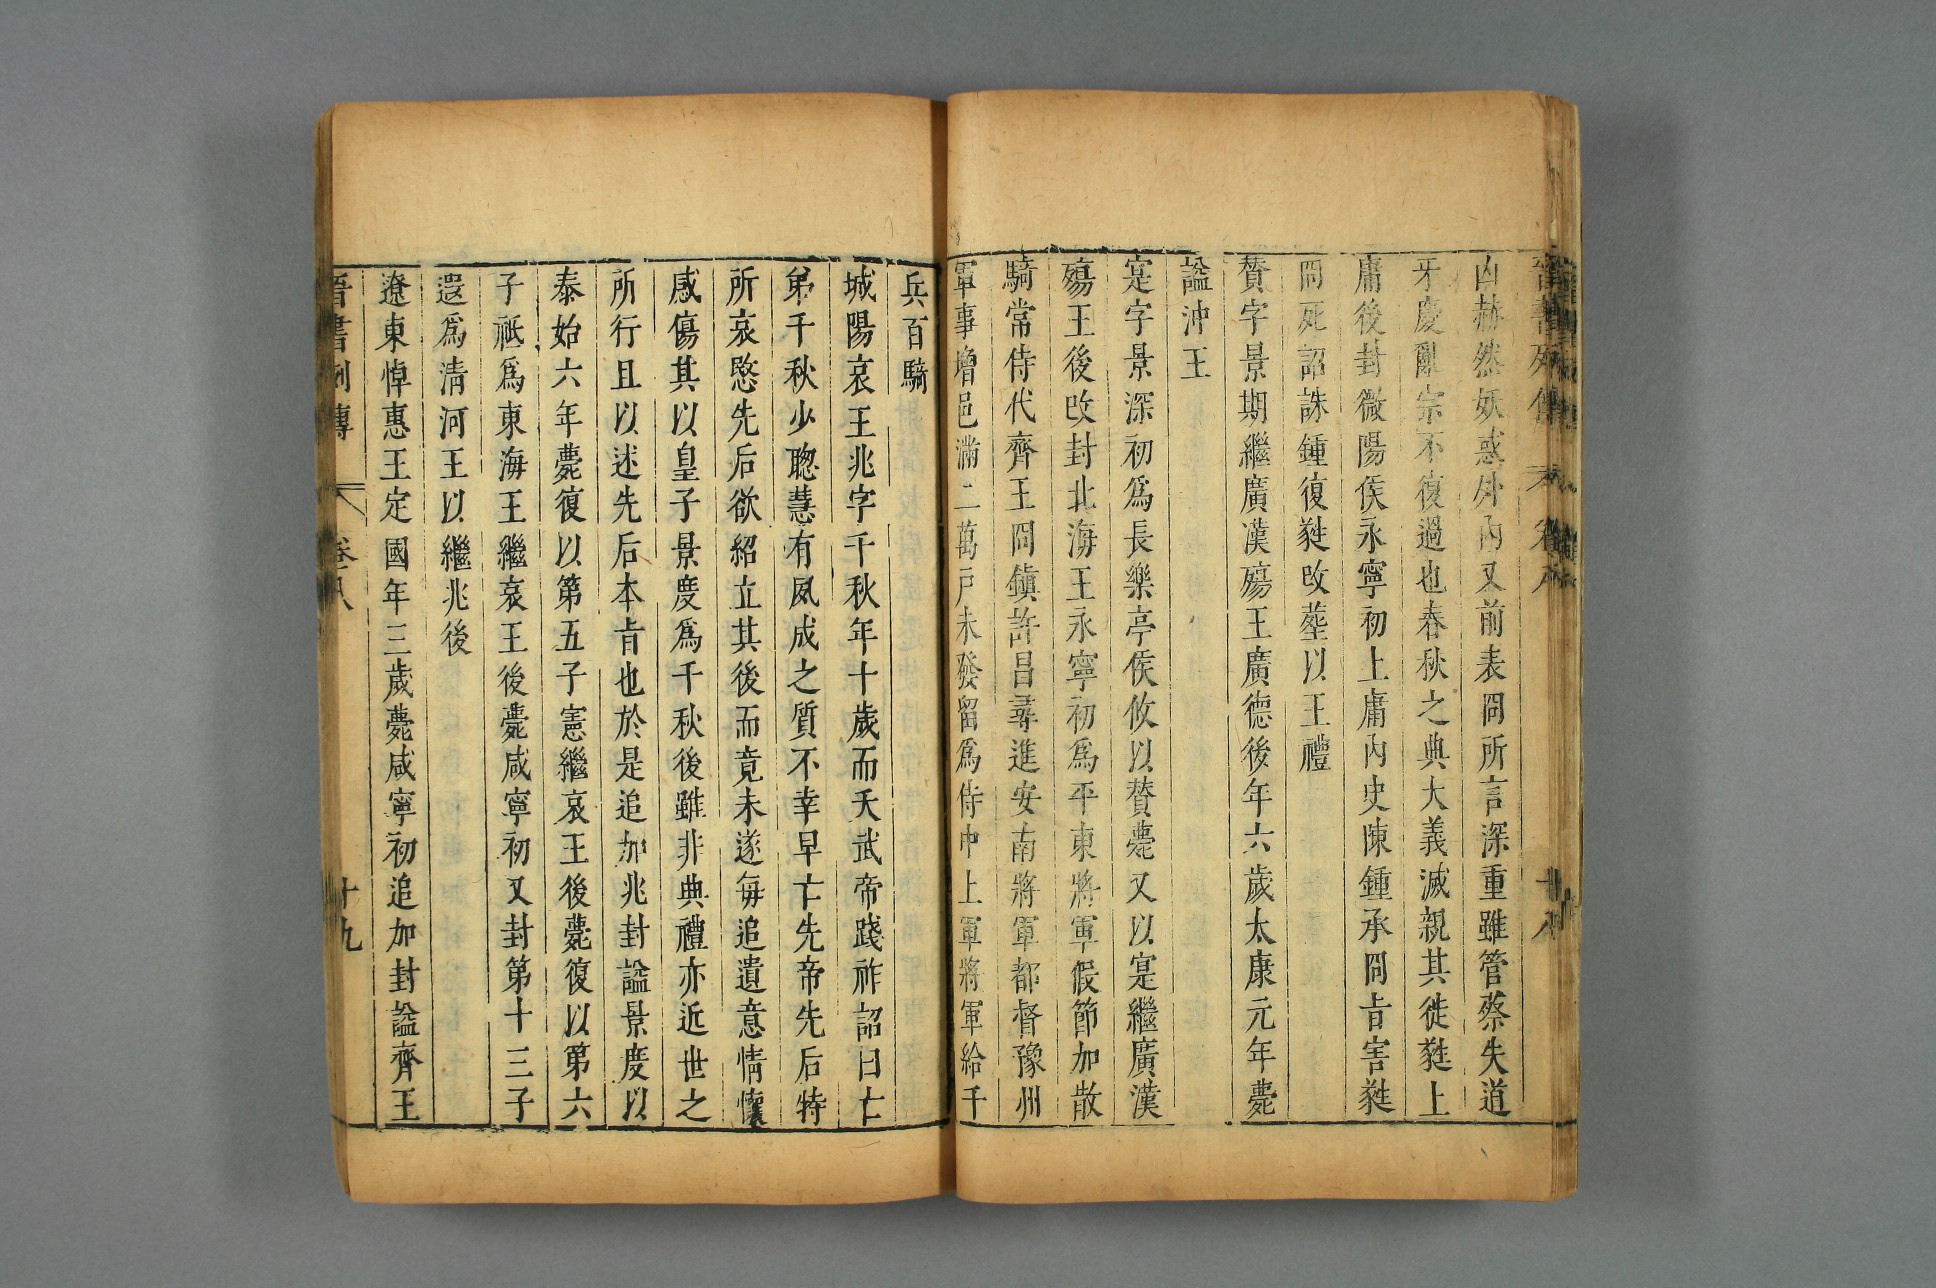 晉書列傳 卷八 十八
凶赫然妖惑外內又前表冏所言深重雖管蔡失道
牙慶亂宗不復過也春秋之典大義滅親其徙蕤上
庸後封微陽侯永寧初上庸內史陳鍾承冏旨害蕤
冏死詔誅鍾復蕤改葬以王禮
贊字景期繼廣漢殤王廣德後年六歲太康元年薨
謚沖王
寔字景深初爲長樂亭侯攸以贊薨又以寔繼廣漢
殤王後改封北海王永寧初爲平東將軍假節加散
騎常侍代齊王冏鎮許昌尋進安南將軍都督豫州
軍事增邑滿二萬戶未發留爲侍中上軍將軍給千
兵百騎
城陽哀王兆字千秋年十歲而夭武帝踐祚詔曰亡
弟千秋少聰慧有夙成之質不幸早亡先帝先后特
所哀愍先后欲紹立其後而竟未遂每追遺意情懷
感傷其以皇子景度爲千秋後雖非典禮亦近世之
所行且以述先后本旨也於是追加兆封謚景度以
泰始六年薨復以第五子憲繼哀王後薨復以第六
子祗爲東海王繼哀王後薨咸寧初又封第十三子
遐爲清河王以繼兆後
遼東悼惠王定國年三歲薨咸寧初追加封謚齊王
晉書列傳 卷八 十九